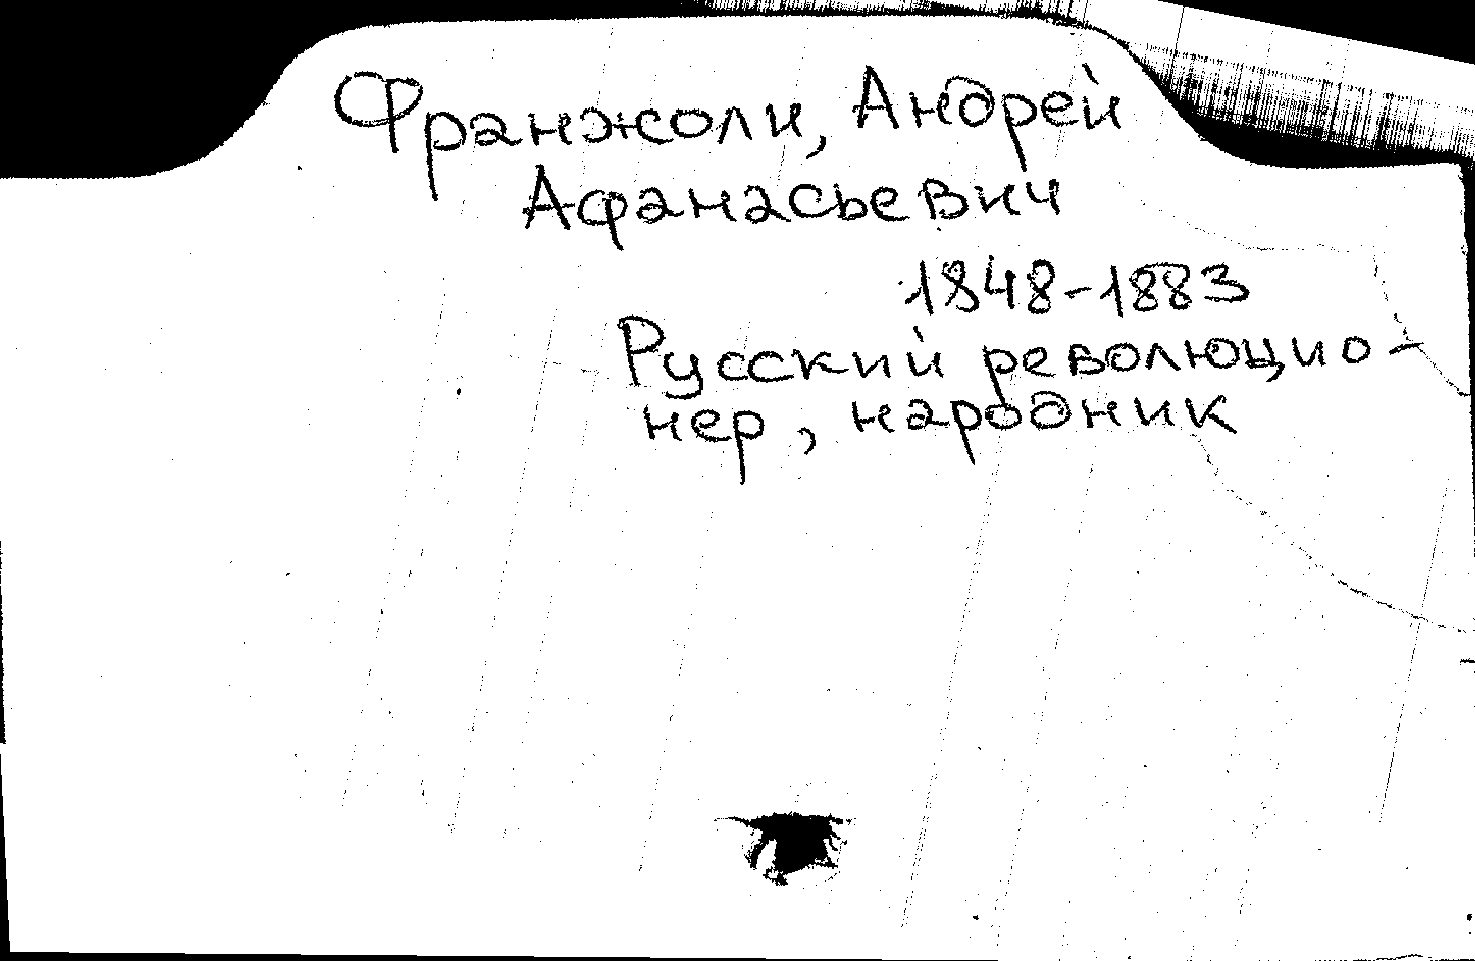 Франжоли, Андрей
Афанасьевич
1848-1883
Русский революцио-
нер, народник